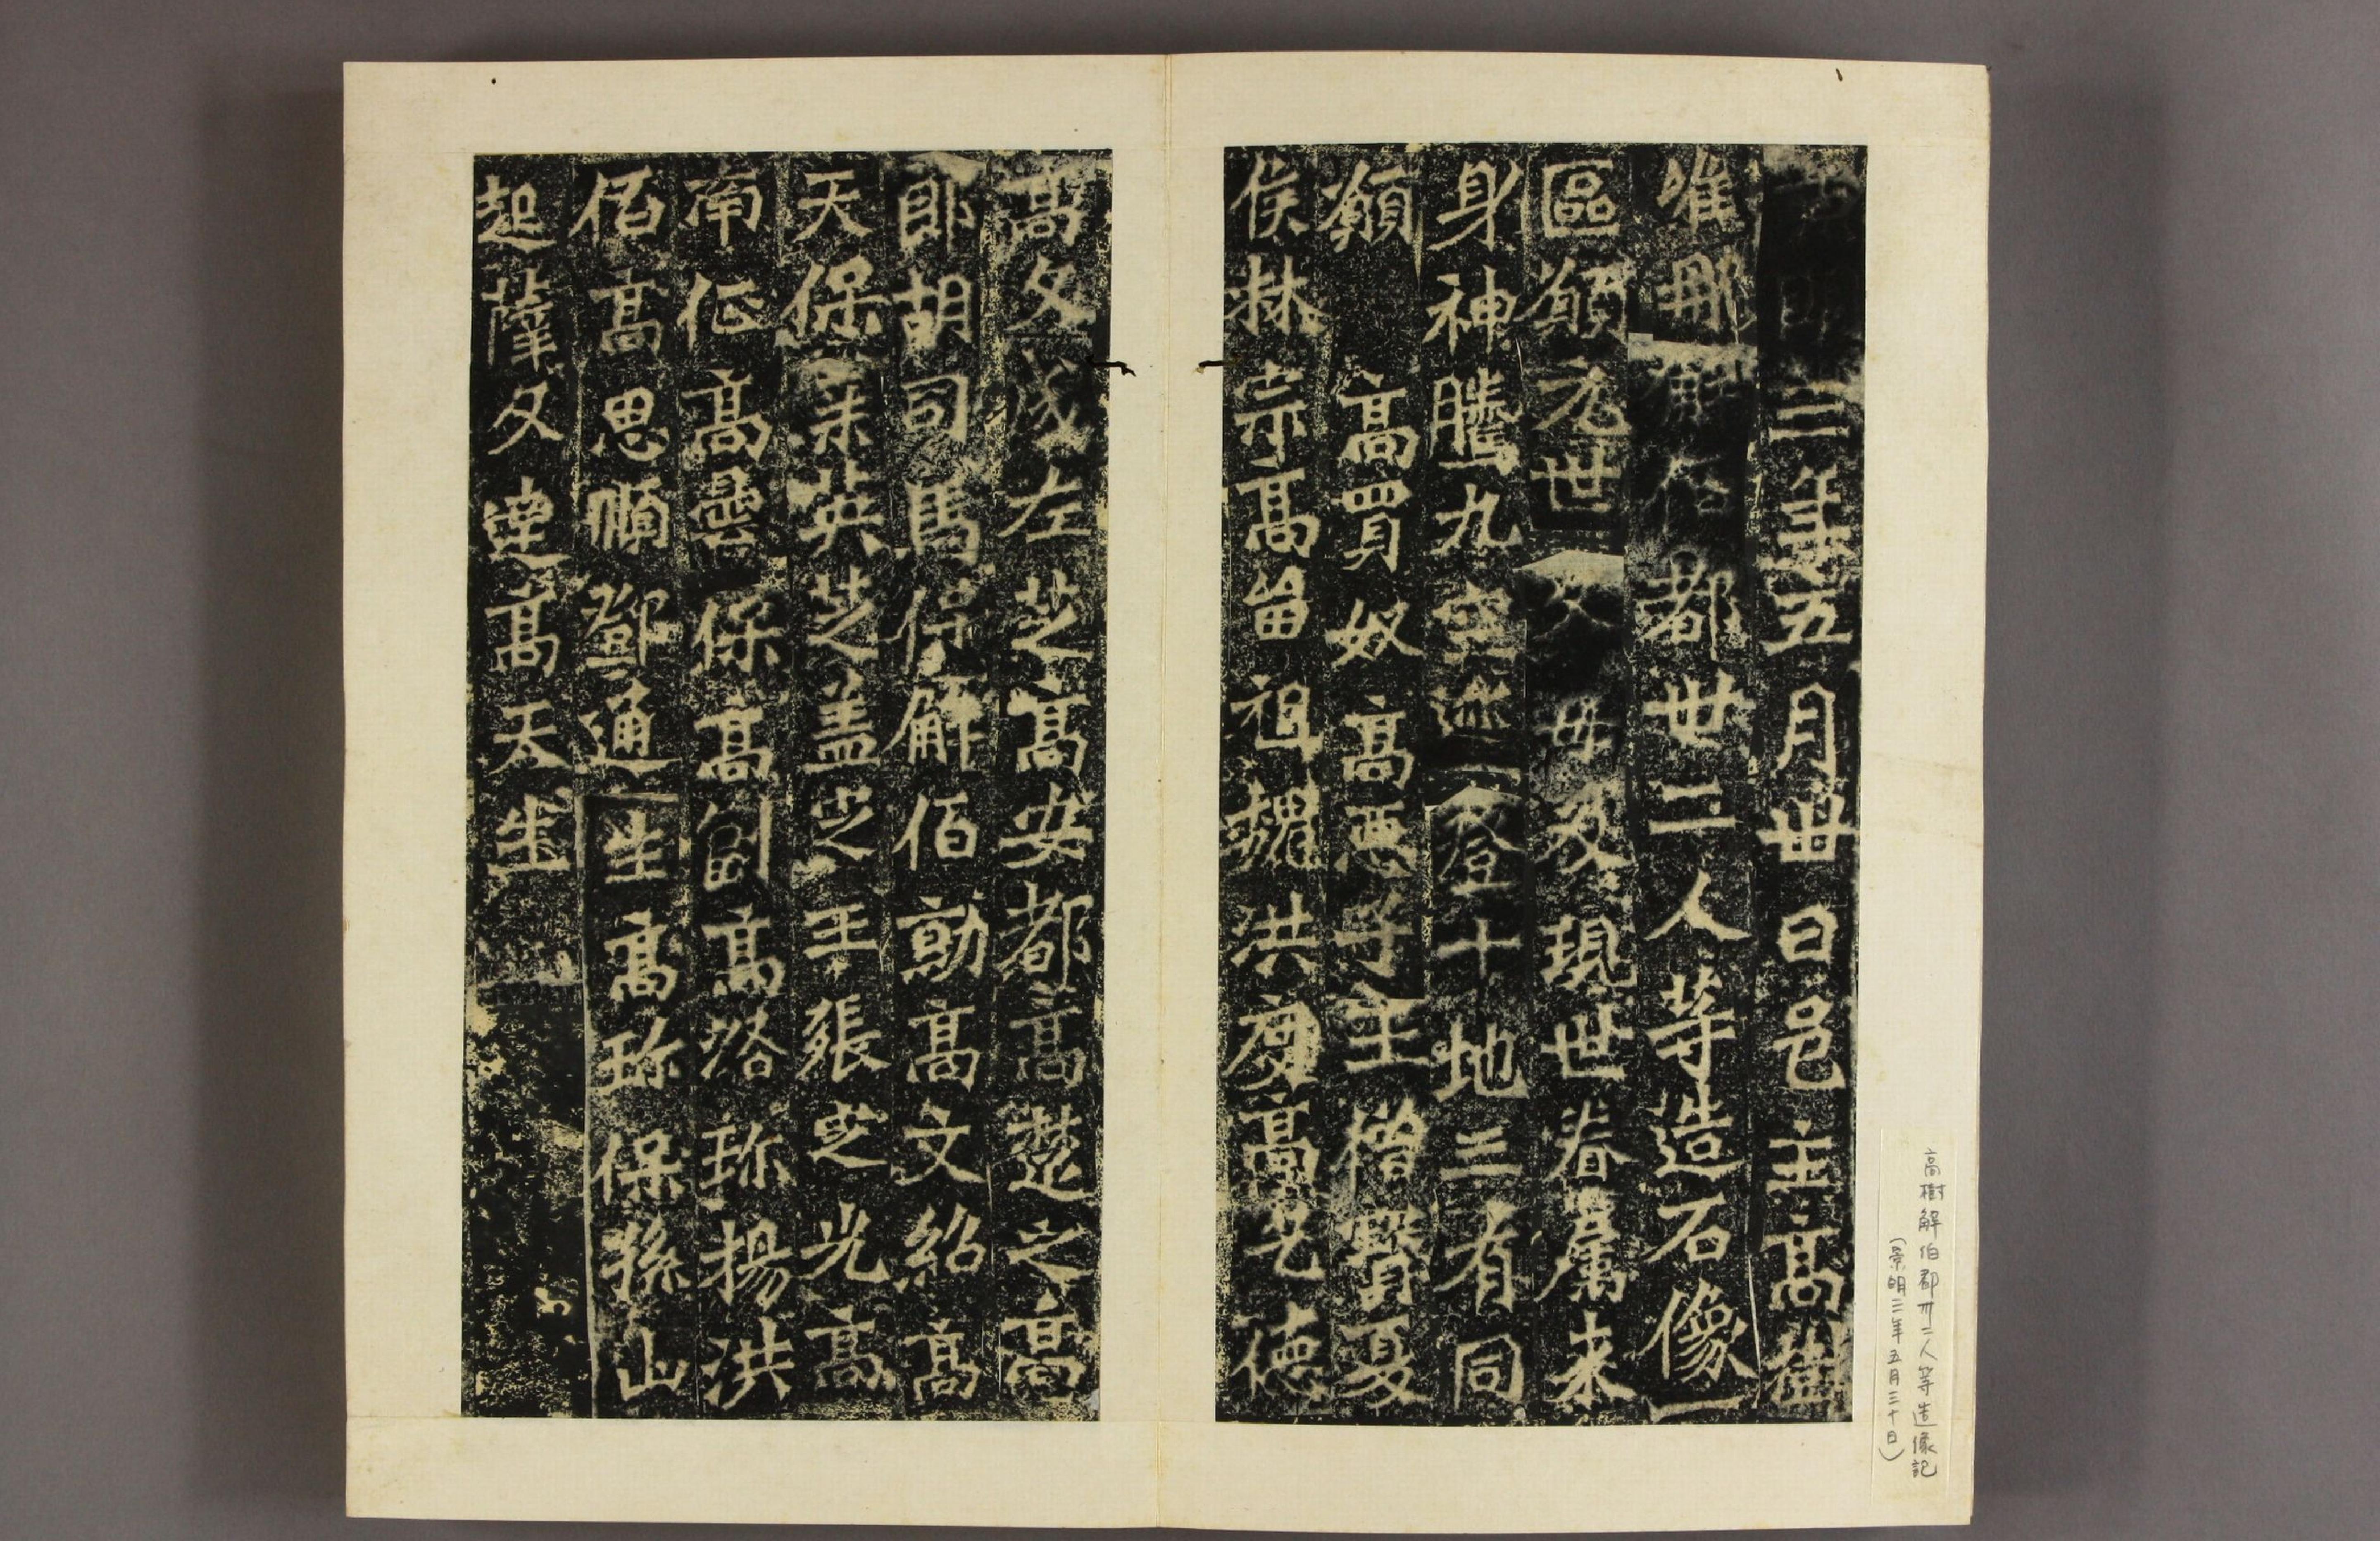 三年五月卅日邑主高樹
唯那解佰都卅二人等造石像一
區願元世父母及現世眷屬来
身神騰九空迹登十地三有同
願 高買奴 高惡子 王僧寶 夏
侯林宗 高留祖 魏洪度 高乞德
高文成 左芝 高安都 高楚之 高
郎胡 司馬保 解佰勍 高文紹 高
天保 英芝 盖定王 張定光 高
南征 高曇保 高 高洛珎 楊洪
佰 高思順 鄧通生 高珎保 孫山
起 薩文達 高天生
高樹解伯都卅二人等造像記
(景明三年五月三十日)